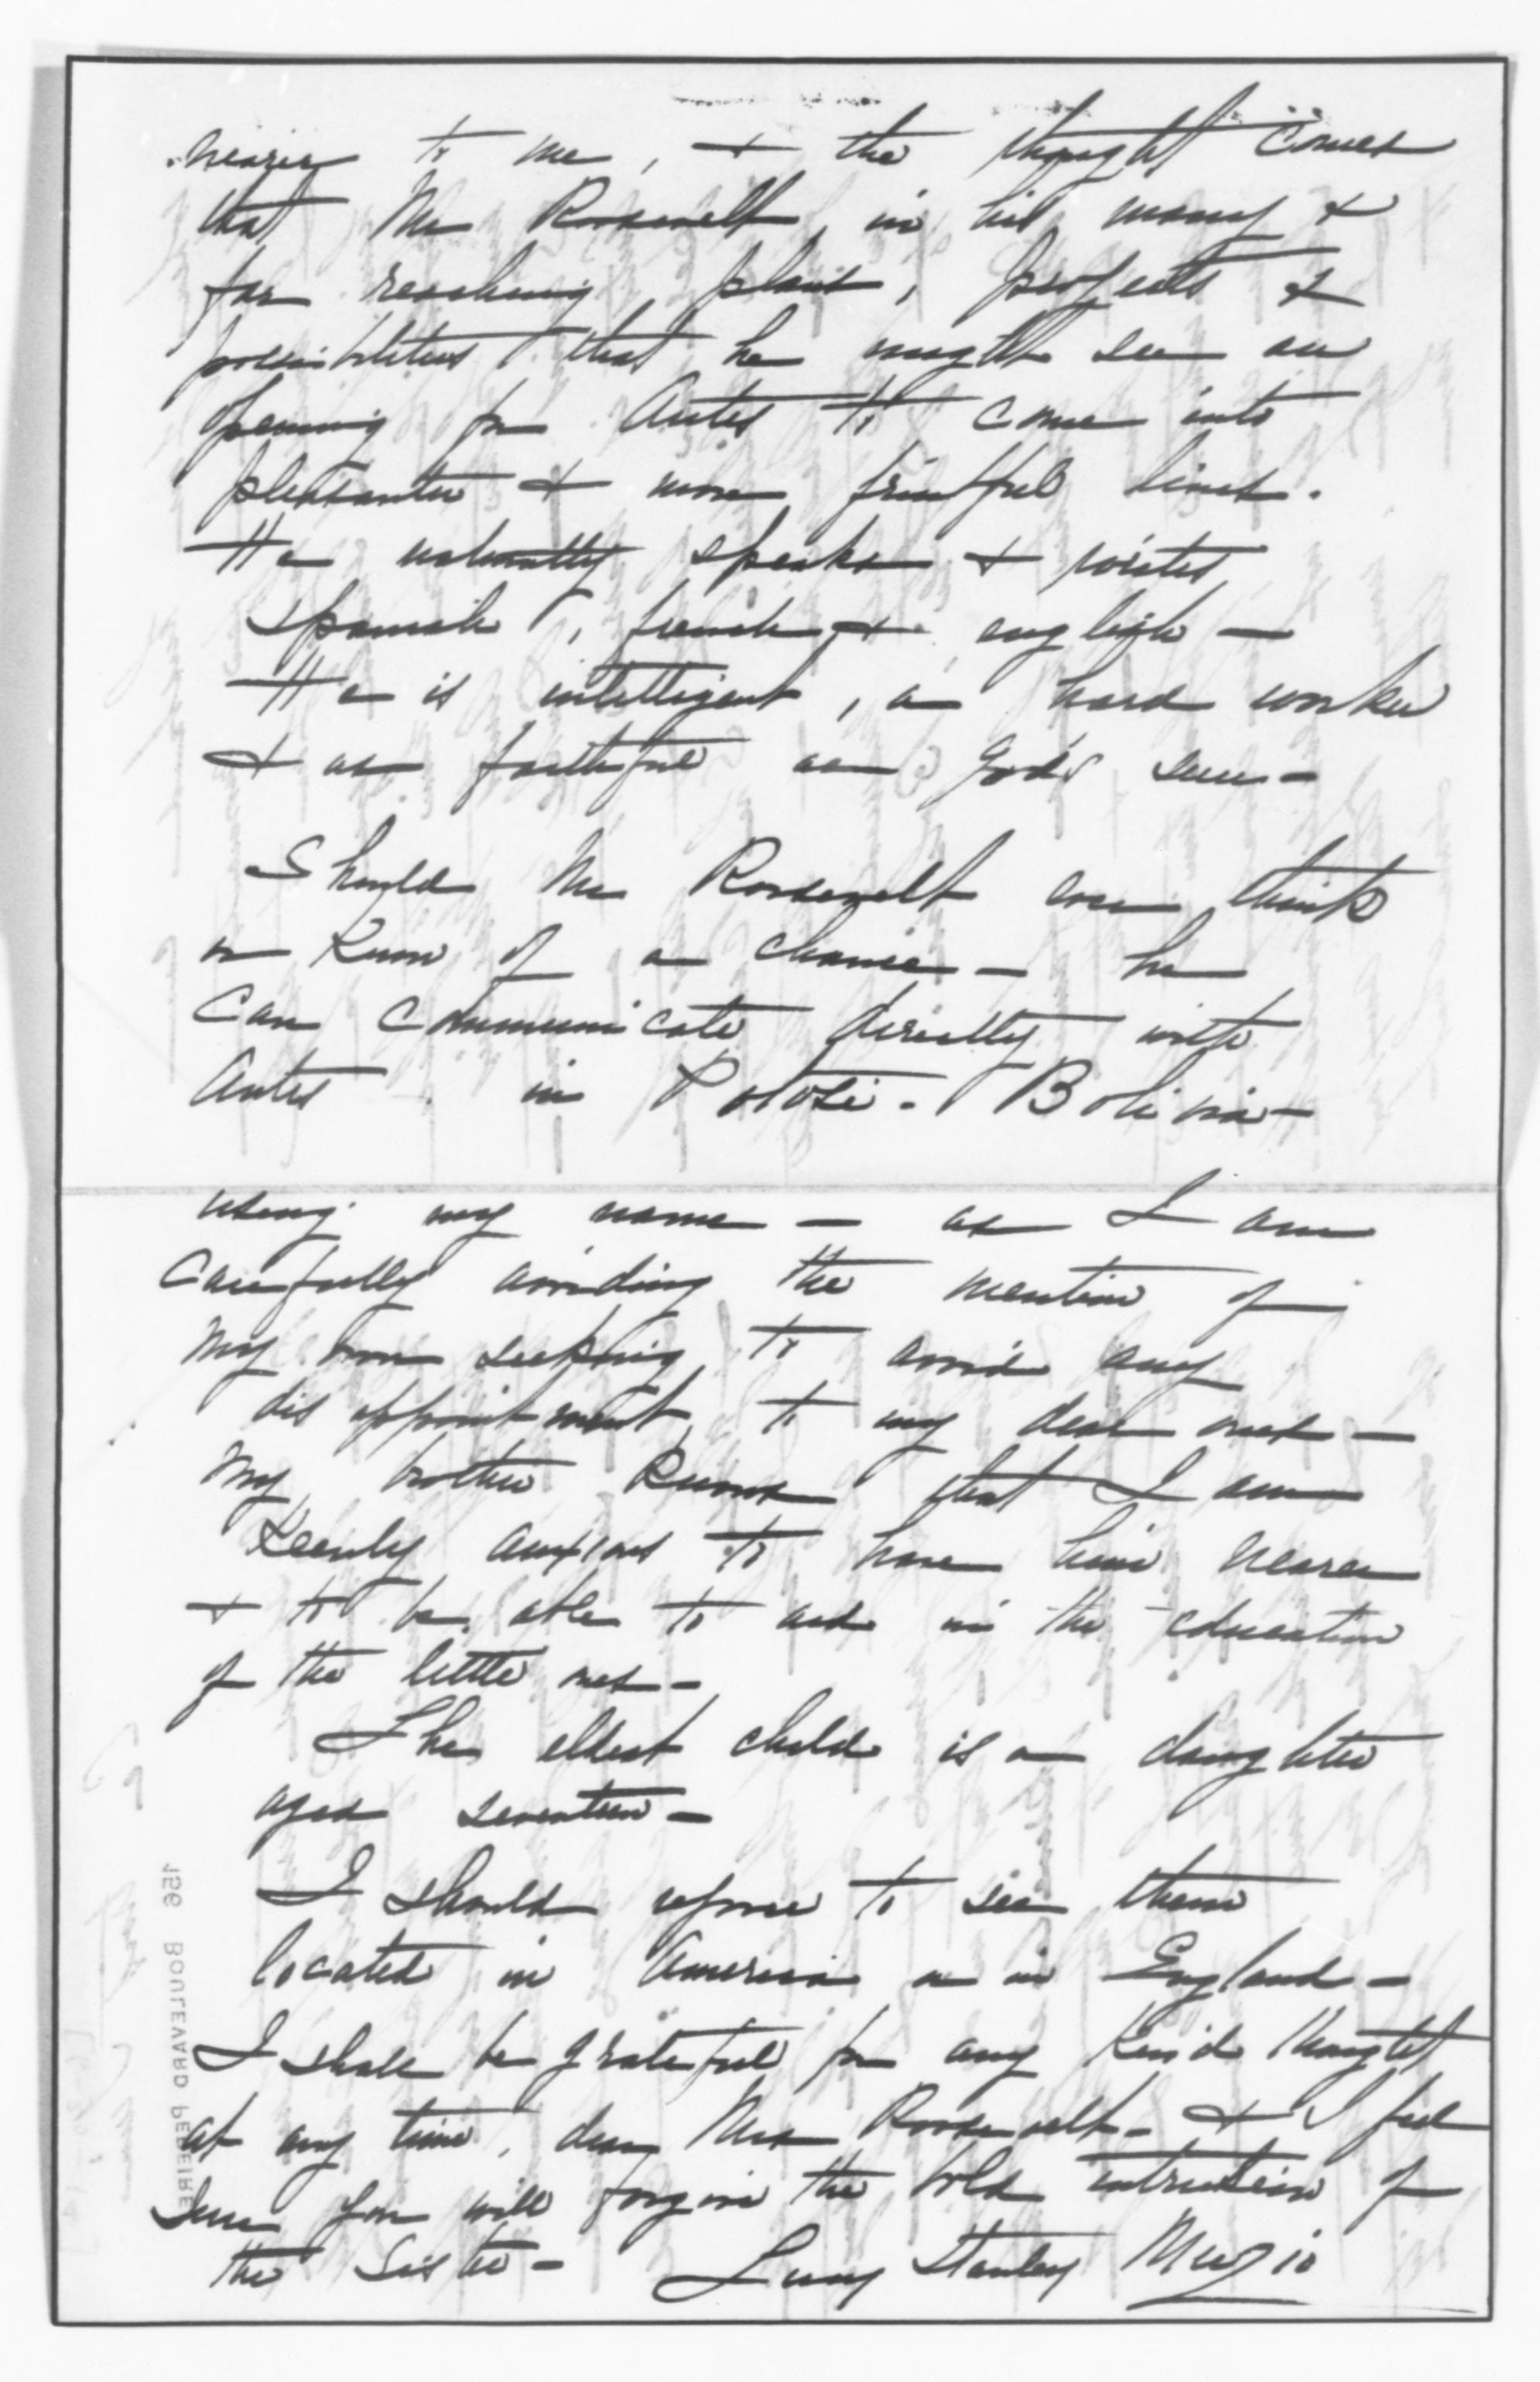 nearer to me, & the thought comes
that Mr Roosevelt, in his many &
far reaching plans, projects &
possibilities that he might see an
opening for Artes to come into
pleasanter & more fruitful lines.
He naturally speaks & writes
Spanish, french & english —
He is intelligent, a hard worker
& as faithful as God's sun —
Should Mr Roosevelt ever think
or Know of a chance — he
Can Communicate directly with
Artes in Potosi - Bolivia —
using my name — as I am
Carefully avoiding the mention of
my own seeking to avoid any
disappointment, to my dear ones —
My brother Knows that I am
Keenly anxious to have him nearer
& to be able to aid in the education
of the little ones —
The eldest child is a daughter
aged seventeen —
I should rejoice to see them
located in America or in England —
I shall be grateful for any Kind thought
at any time, dear Mrs Roosevelt - & I feel
sure you will forgive the bold intrusion of
the Sister — Lucy Stanley Muzio
156 BOULEVARD PEREIRE